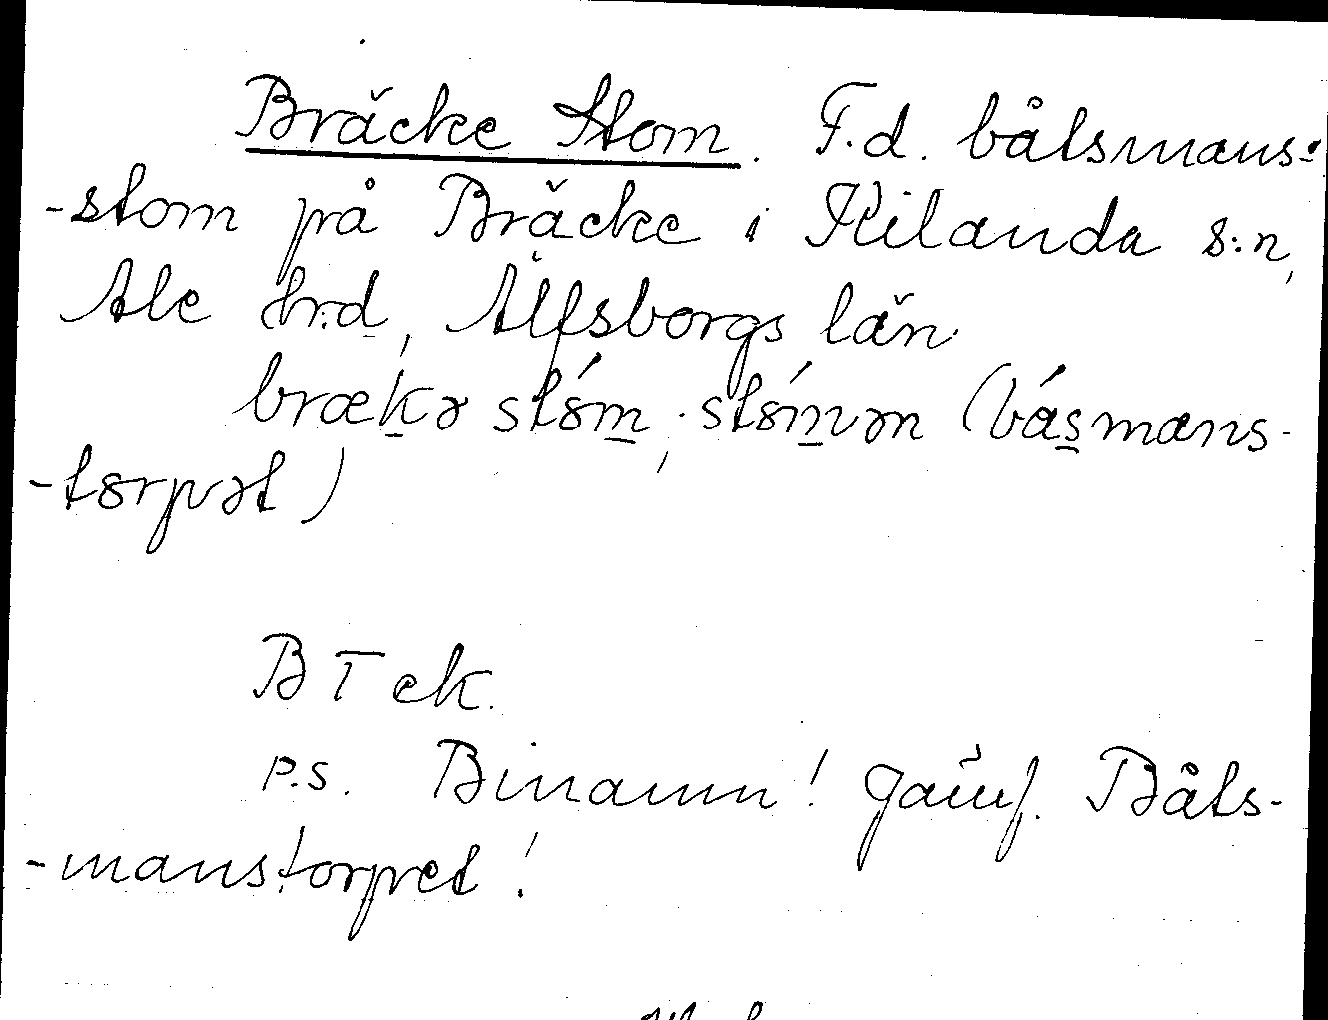 Bräcke Stom. F.d. båtsmans-
-stom på Bräcke i Kilanda s:n,
Ale hrd, Älfsborgs län
brækə stóm, stómən (básmans-
-torpət)
BTek.
P.S. Binamn! Jämf. Båts-
-manstorpet!